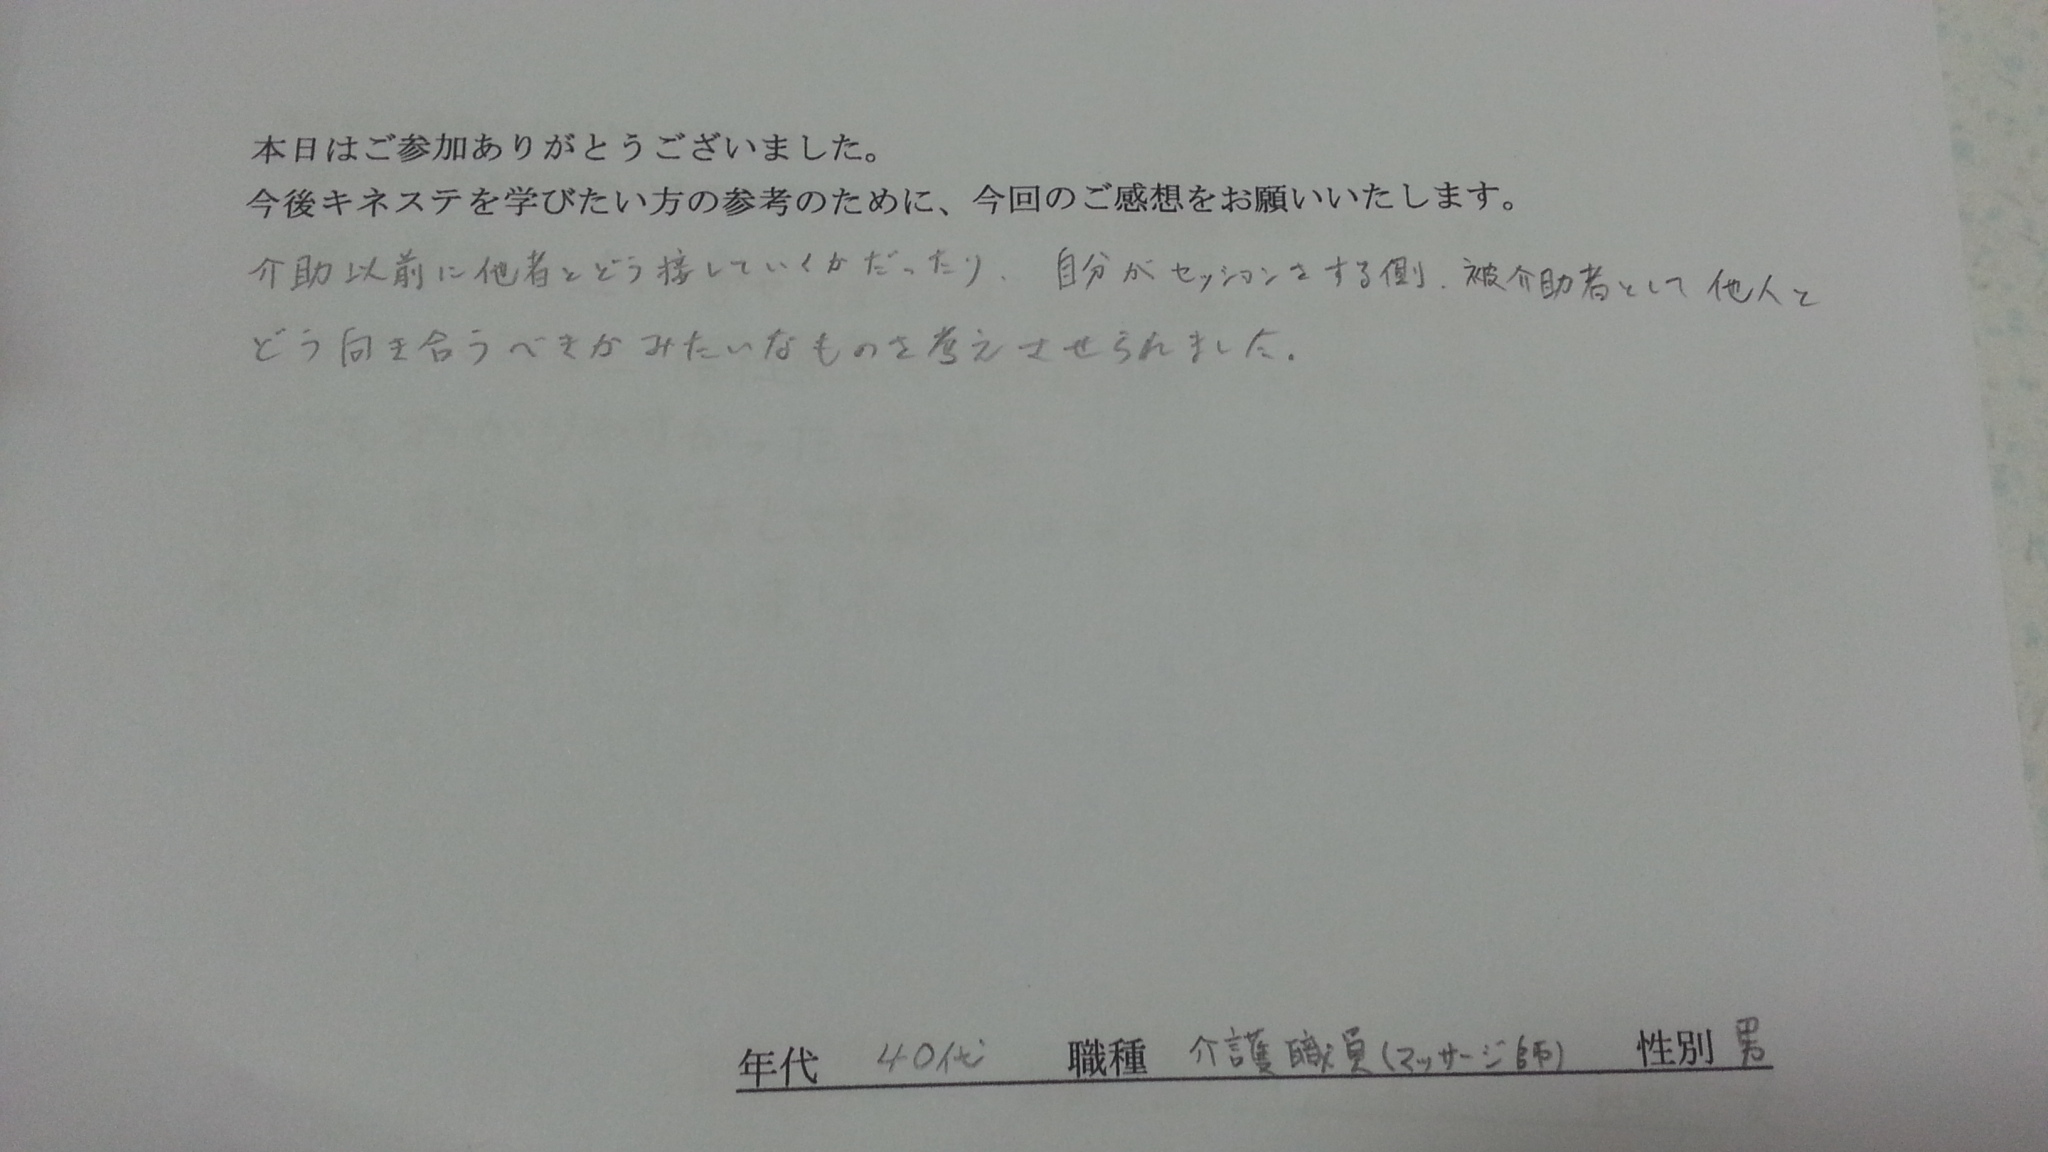 本日はご参加ありがとうございました。
今後キネステを学びたい方の参考のために、今回のご感想をお願いいたします。
介助以前に他者とどう接していくかだったり、自分がセッションをする側、被介助者として他人と
どう向き合うべきかみたいなものを考えさせられました。
年代 40代 職種 介護職員(マッサージ師) 性別 男